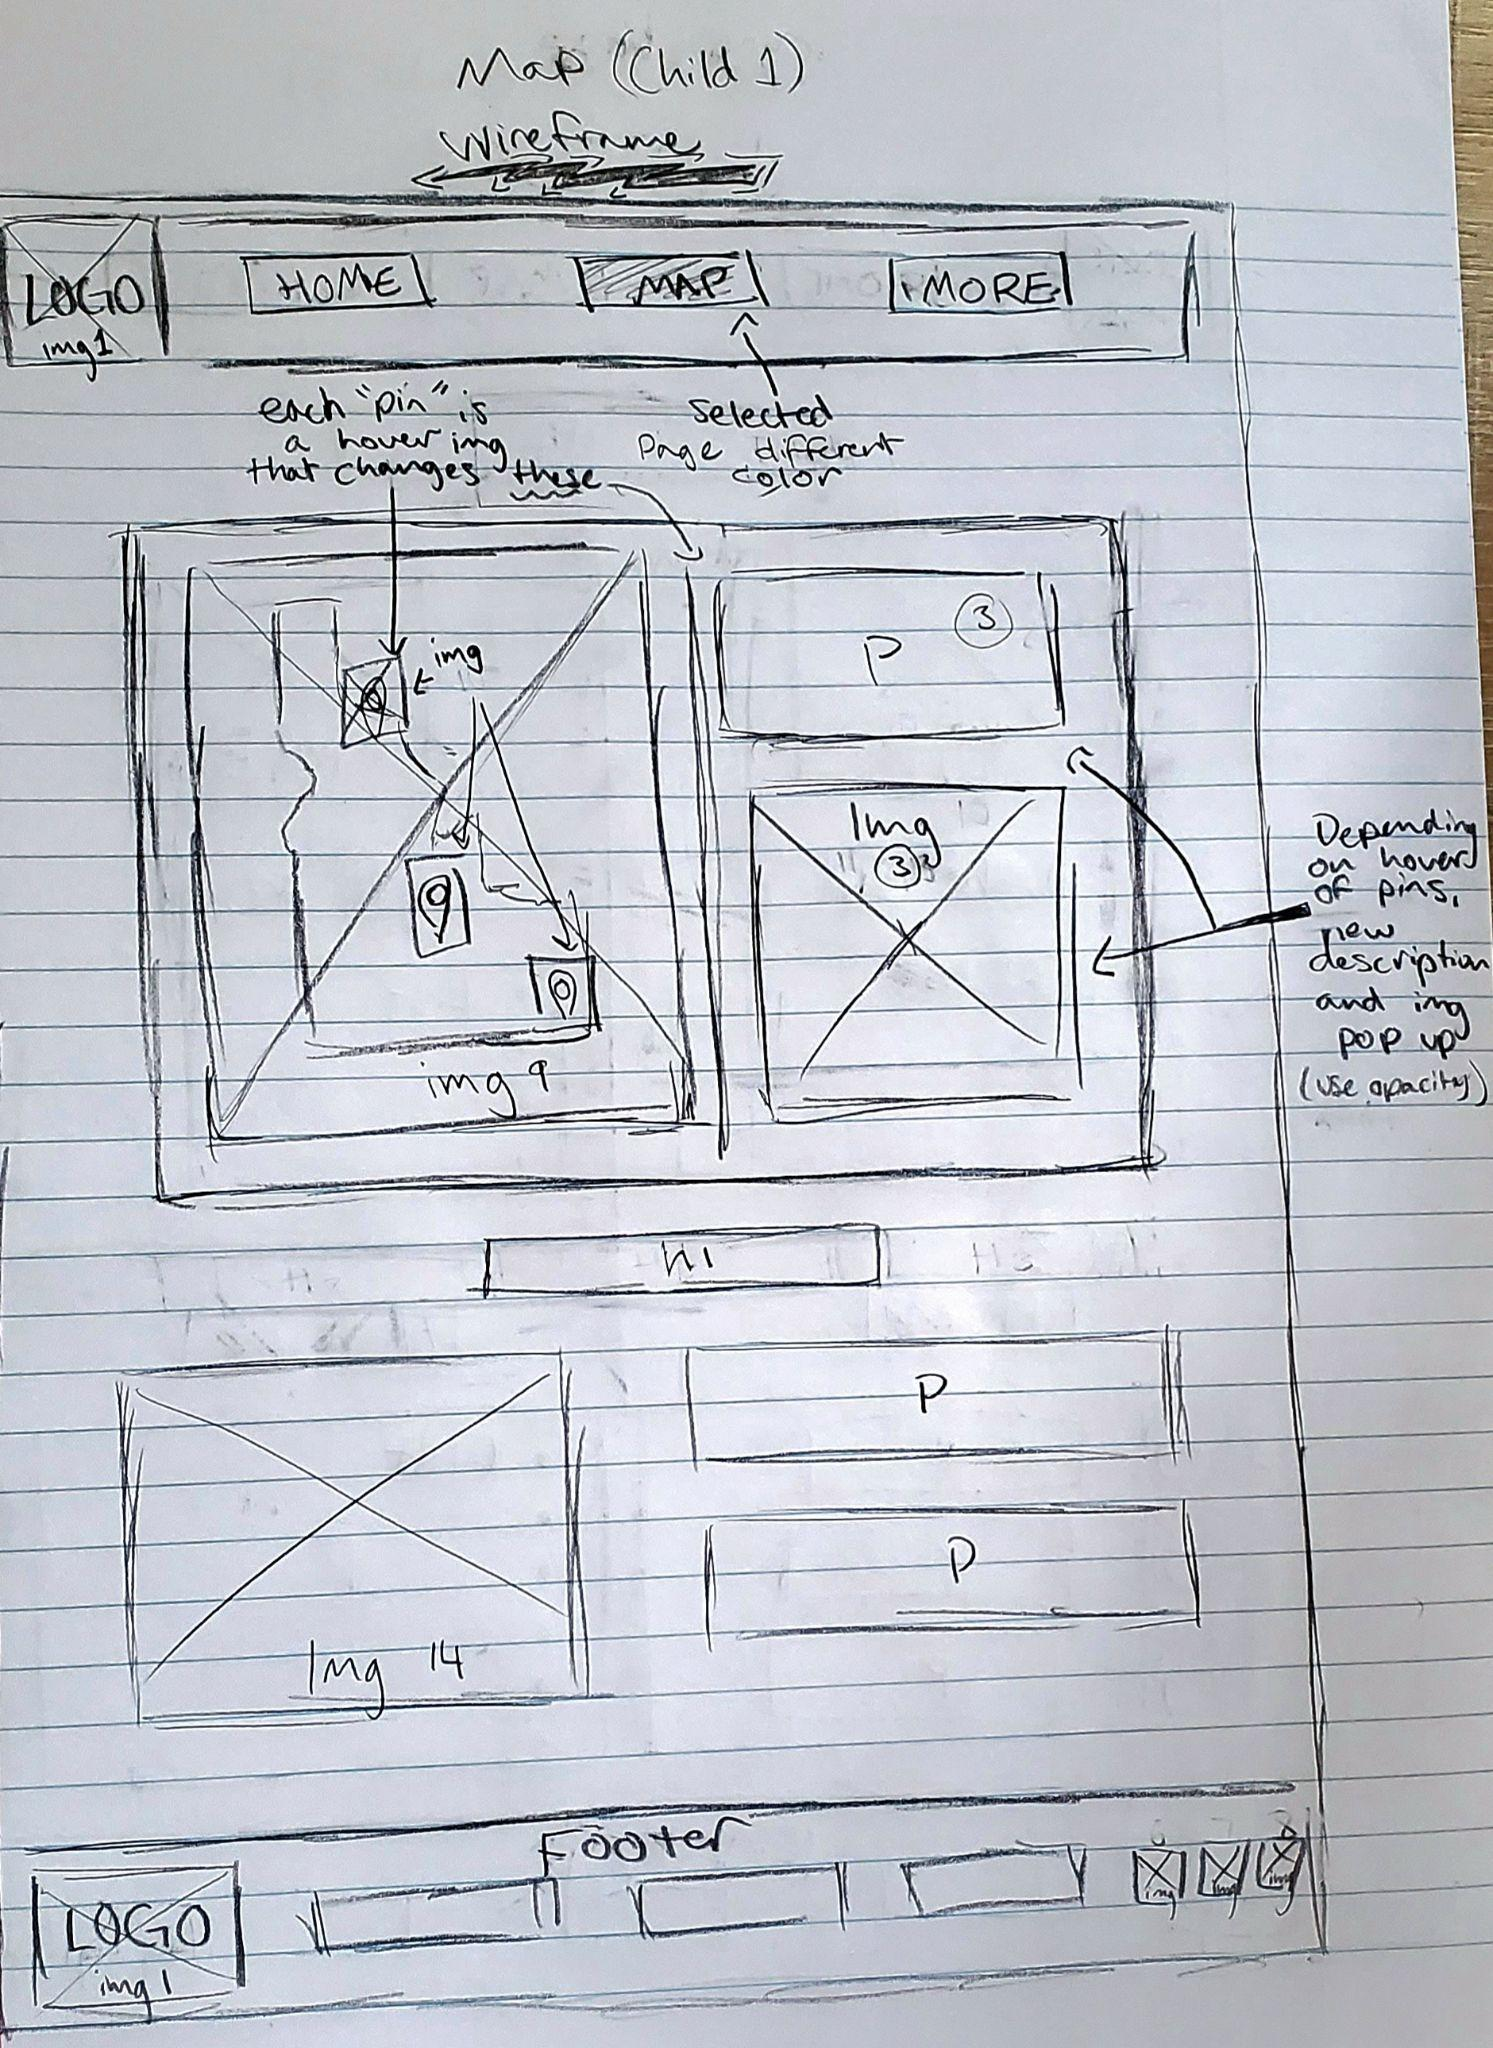 Map (Child 1)
Wireframe
LOGO
img1
HOME
MAP
MORE
each "pin" is
a hover img
that changes these
Selected
Page different
color
img
P
3
Img
3
img 9
Depending
on hover
of pins,
new
description
and img
pop up
(use opacity)
h1
P
P
Img 14
Footer
LOGO
img 1
img
img
img